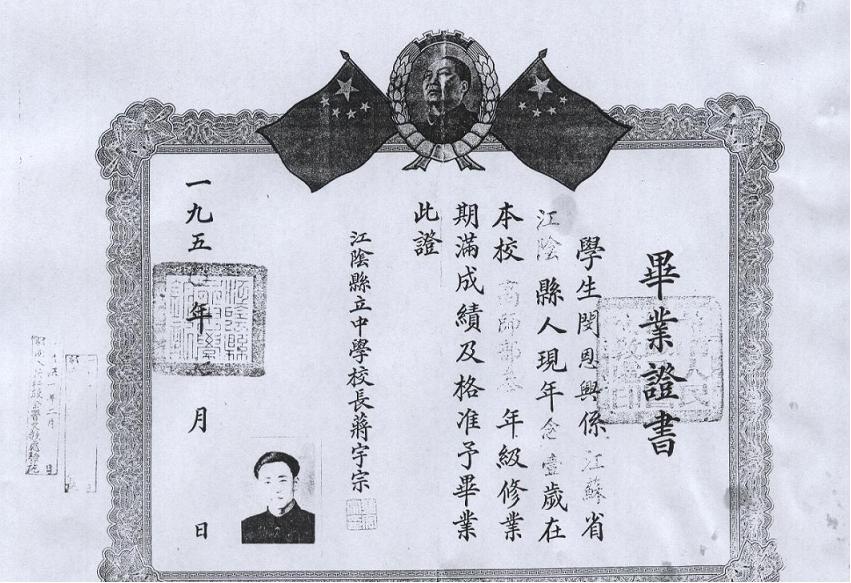 畢業證書
學生閔恩興係江蘇省
江陰縣人現年念壹歲在
本校高師部叁年級修業
期滿成績及格准予畢業
此證
江陰縣立中學校長蔣宇宗
一九五年月日